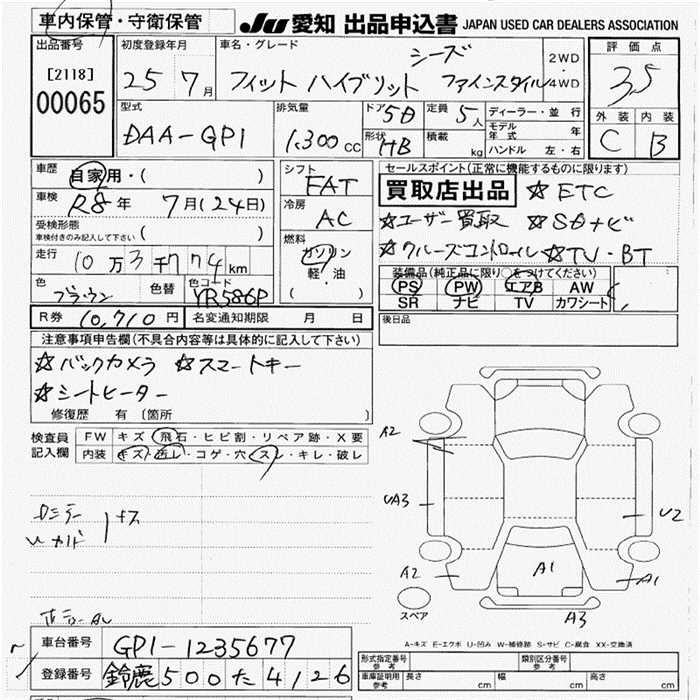 車内保管・守衛保管 JU 愛知 出品申込書 JAPAN USED CAR DEALERS ASSOCIATION
出品番号 [2118] 00065
初度登録年月 25 7月
車名・グレード シーズ
フィット ハイブリット ファインスタイル 2WD・4WD
評価点 3.5
型式 DAA-GP1
排気量 1,300 cc
ドア 5D 定員 5人
形状 HB 積載 kg
ディーラー・並行
モデル年式 年
ハンドル 左・右
外装 C 内装 B
車歴 自家用・( )
車検 R8年 7月(24日)
受検形態
車検付きのみ記入して下さい ( )
走行 10万3千774km
色 ブラウン 色替 色コード YR586P
シフト FAT
冷房 AC
燃料 ガソリン
軽・油
( )
セールスポイント(正常に機能するものに限ります)
買取店出品 ☆ETC
☆ユーザー買取 ☆SDナビ
☆クルーズコントロール ☆TV・BT
装備品(純正品に限り○をつけてください)
PS PW エアB AW
SR ナビ TV カワシート
R券 10,710円 名変通知期限 月 日
後日品
注意事項申告欄(不具合内容等は具体的に記入して下さい)
☆バックカメラ ☆スマートキー
☆シートヒーター
修復歴 有〔箇所 〕
検査員記入欄
FW キズ・飛石・ヒビ割・リペア跡・X要
内装 キズ・汚レ・コゲ・穴・スレ・キレ・破レ
A2
UA3
U2
A2
A1
A1
A3
スペア
A-キズ E-エクボ U-凹み W-補修跡 S-サビ C-腐食 XX-交換済
車台番号 GP1-1235677
登録番号 鈴鹿500た4126
形式指定番号 参考 類別区分番号 参考
車庫証明用 参考 長さ cm 幅 cm 高さ cm